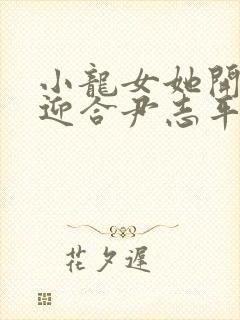 小龍女她開
迎合尹志平
花夕遲